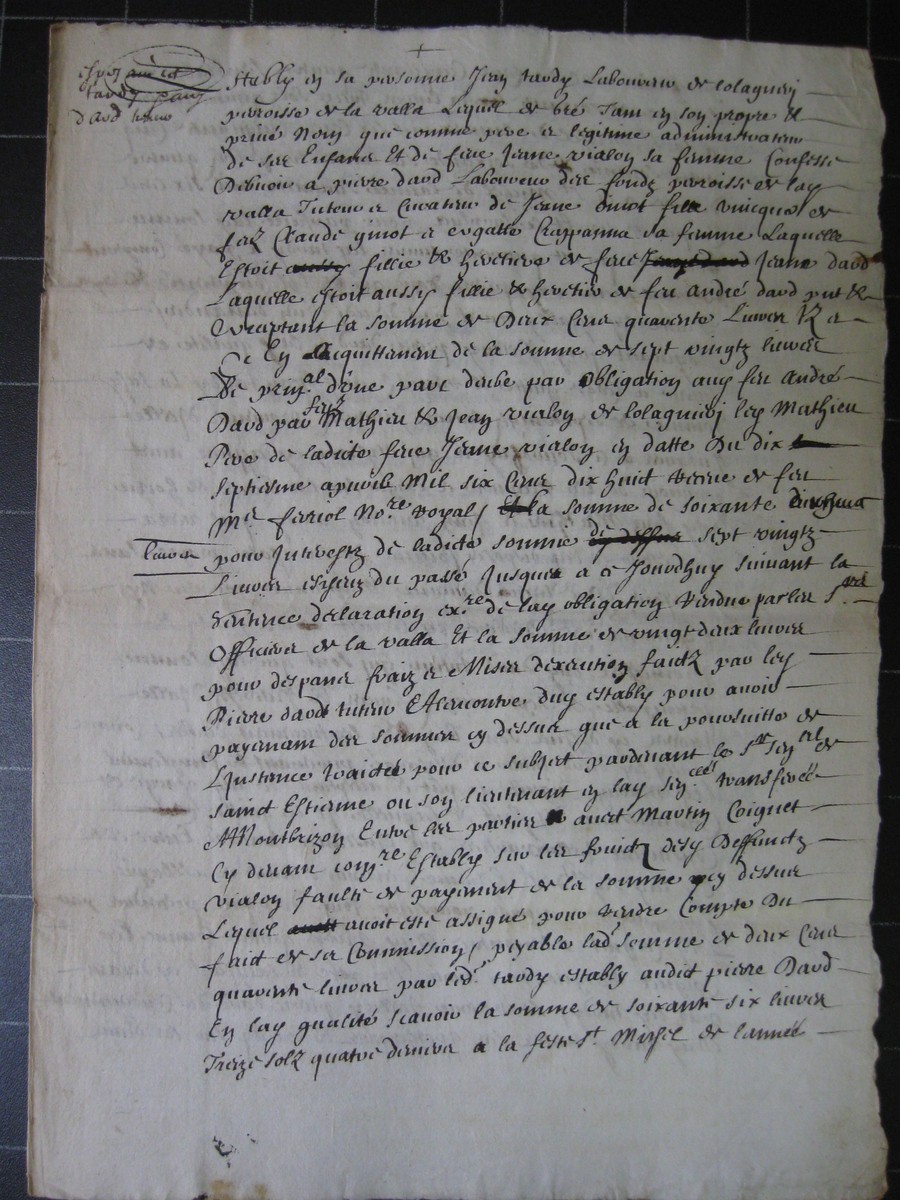 tardy
davd
Stably en sa personne Jean tardy Laboureur de Lolagnieu
parroisse de la valla Lequel de gré Tam en son propre &
privé Nom que comme pere et legitime administrateur
de ses Enfans Et de feue Jeane vialon sa femme Confesse
Debvoir a pierre davd Laboureur des fondz parroisse de lad
valla Tuteur et Curateur de Jeane ginot fille unicque de
feuz Claude ginot et Crappanna sa femme Laquelle
Estoit fillie & heretiere de feue Jeane davd
Laquelle estoit aussy fillie & heretiere de feu andré davd pnt &
acceptant la somme de Deux Cens quarente Livres tz et
Ce En acquittemen de la somme de sept vingtz livres
De prinal d'une part deube par obligation aud feu André
Davd par feuz Mathieu & Jean vialon de lolagnieu led Mathieu
Pere de ladicte feue Jeane vialon en datte Du dix
septiesme apvril Mil six Cens dix huict receue de feu
Me ferriol Nore royal la somme de soixante dixhuict
livres
pour Interestz de ladicte somme sept vingtz
Livres du passé Jusques a ce Jourdhuy suivant la
Sentence declaration exre de lad obligation rendue par les Srs
Officiers de la valla Et la somme de vingt deux livres
pour despans fraiz et Mises dexecution faictz par led
Pierre davd tuteur A lencontre dud estably pour avoir
payemam des sommes cy dessus que a la poursuitte de
Linstence Traictée pour ce subject pardevant le
sainct Estienne ou son lieutenant en lad transferée
A Montbrizon Entre les parties avect Martin Coignet
Cy devam comre Estably sur les fruictz desd Deffunctz
vialon faulte de payement de la somme cy dessus
Lequel avoit esté assigné pour rendre Compte Du
faict de sa Commission, payable lad somme de deux Cens
quarente livres par led tardy estably audict pierre Davd
En lad qualité scavoir la somme de soixante six livres
Treize solz quatre deniers a la feste St Michel de lannée